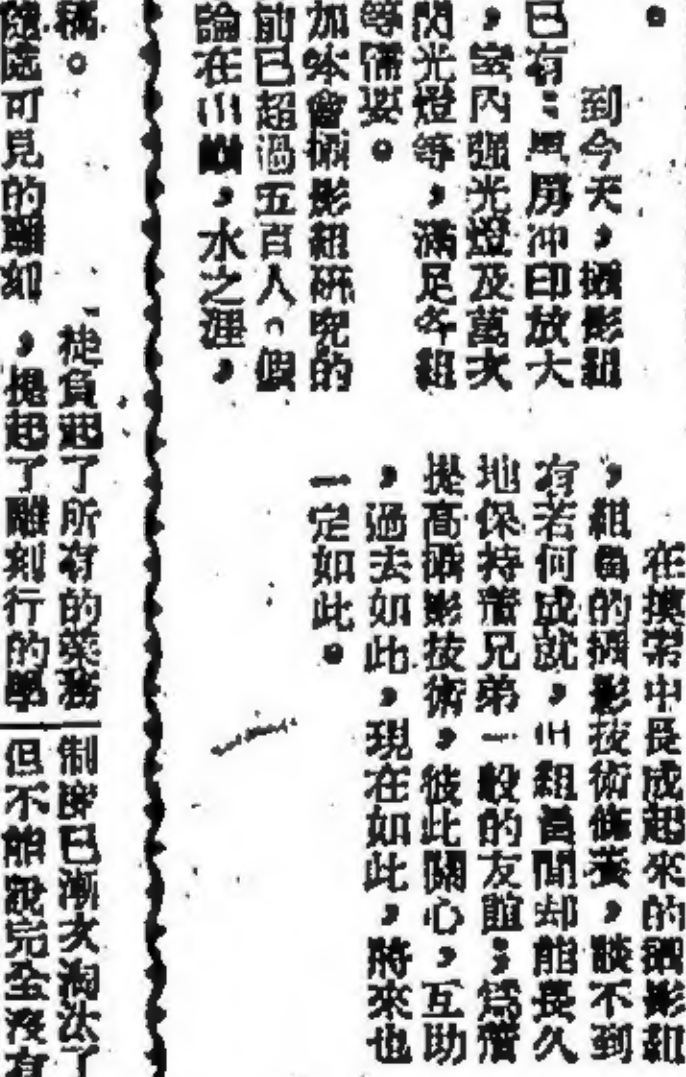 。
到今天，攝影組
已有：黑房冲印放大
，室內強光燈及萬次
閃光燈等，滿足各組
等需要。
加本會攝影組研究的
前已超過五百人。假
論在山巔，水之涯，
在摸索中長成起來的攝影組
，組員的攝影技術修養，談不到
有若何成就，但組員間却能長久
地保持着兄弟一般的友誼；為着
提高攝影技術，彼此關心，互助
，過去如此，現在如此，將來也
一定如此。
稱。
隨處可見的雕刻
徒負起了所有的業務
，提起了雕刻行的學
制度已漸次淘汰了
但不能說完全沒有